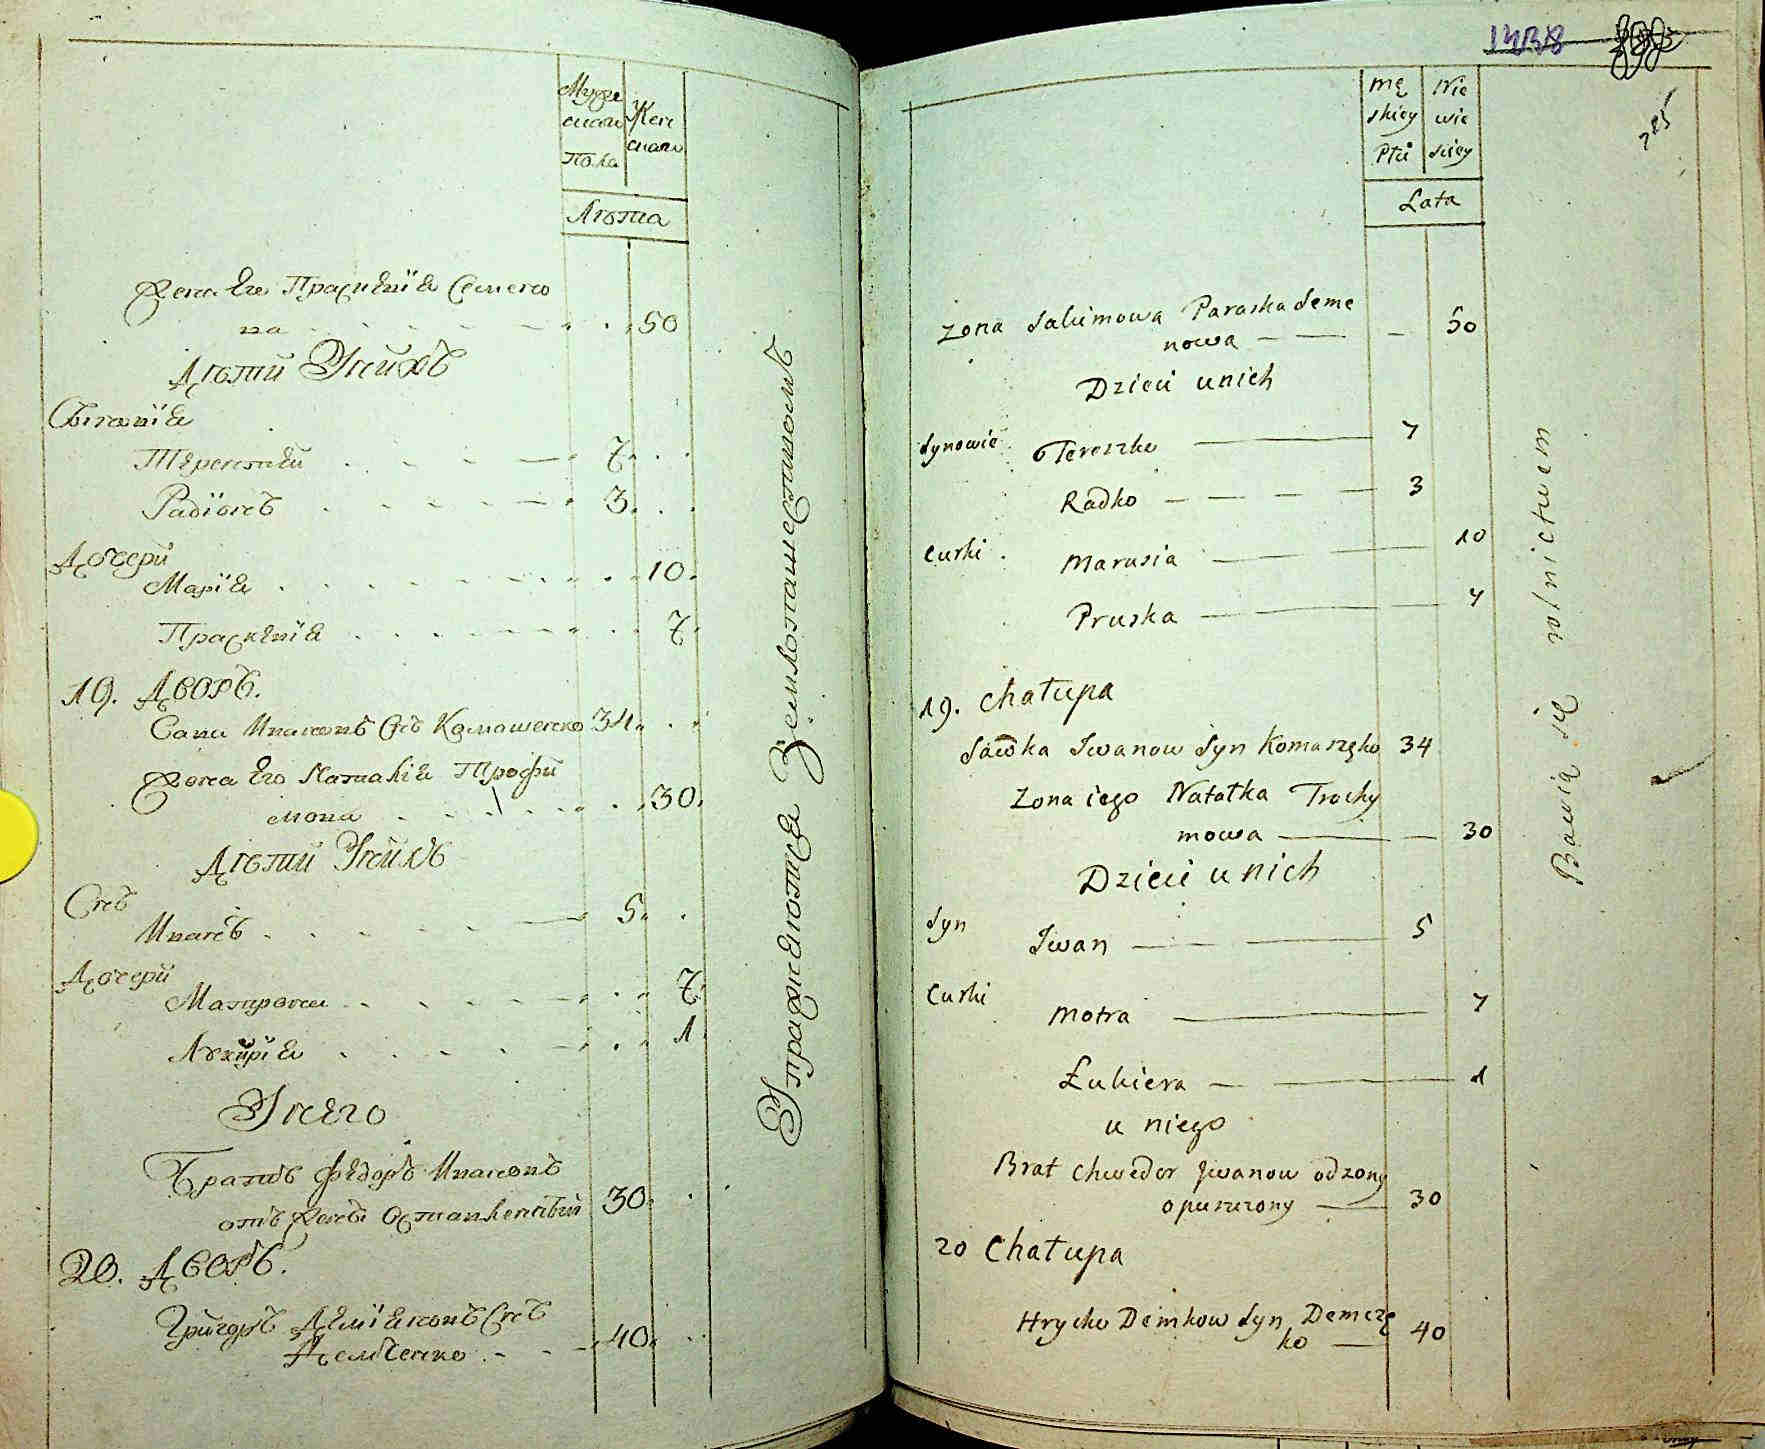 Мужес
каго
Пола
Жен
скаго
Лѣта
Жена Его Праскевія Семено
ва 50
Дѣти Унихъ
Сыновія
Терентій 7
Радіонъ 3
Дочери
Марія 10
Праскевія 7
19. Дворъ.
Сава Ивановъ Снъ Комашенко 34
Жена Его Наталія Трофи
мова 30
Дѣти Унихъ
Снъ
Иванъ 5
Дочери
Матрона 7
Лукирія 1
Унего
Братъ Федоръ Ивановъ
отъ жены Оставленный 30
20. Дворъ.
Григоръ Деміяновъ Снъ
Демченко 40
Упражняются Землепашествомъ
1438
285
Mę
skiey
Płci
Nie
wie
sciey
Lata
Zona Jakimowa Paraska Seme
nowa 50
Dzieci unich
Synowie Tereszko 7
Radko 3
Curki Marusia 10
Pruska 7
19. Chałupa
Sawka Iwanow Syn Komaszęko 34
Zona iego Natałka Trochy
mowa 30
Dzieci u nich
Syn Iwan 5
Curki Motra 7
Łukiera 1
u niego
Brat Chwedor Iwanow od zony
opuszczony 30
20 Chałupa
Hrycko Demkow Syn Demczę
ko 40
Bawią się rolnictwem